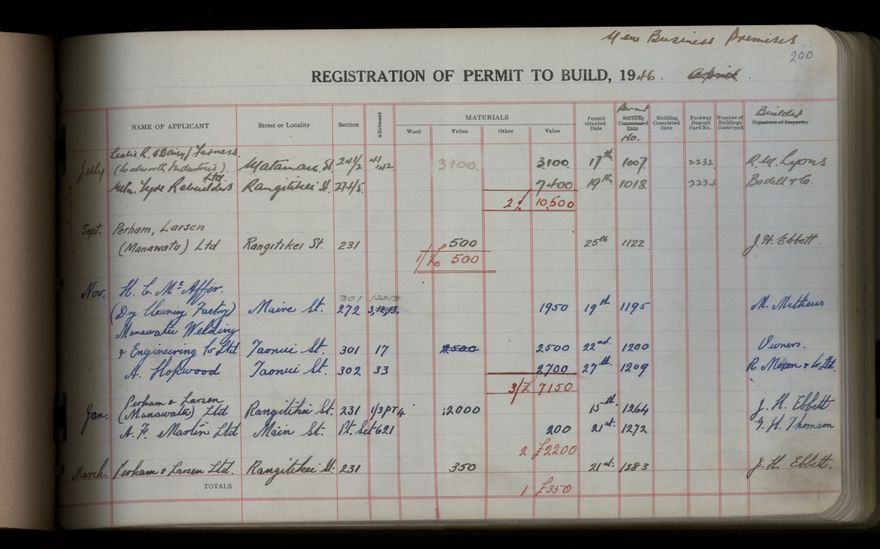 New Business Premises
200
REGISTRATION OF PERMIT TO BUILD, 1946. April.
NAME OF APPLICANT Street or Locality Section Allotment MATERIALS Wood Value Other Value Permit Granted Date Permit No. Building Commenced Date Building Completed Date Footway Deposit Card No. Number of Buildings Destroyed Builder Signature of Inspector
Leslie R. & Daisy
July (Wadsworth Industries) St. 3100 3,100 17th 1007 2232 R. W. Lyons
Ltd
Tyre Rebuilders Rangitikei St. 7400 19th 1018 2234 Bodell & Co.
2 10,500
Sept. Perham, Larsen
(Manawatu) Ltd Rangitikei St. 231 500 25th 1122 J. H. Ebbett.
1/£ 500
Nov. H. C. McAffer.
301 12&13
(Dry Cleaning Factory) Maire St. 272 1950 19th 1195 M. Mathews
Manawatu Welding
& Engineering Co Ltd Taonui St. 301 17 2500 2500 22nd. 1200 Owners.
A. Hopwood Taonui St. 302 33 2700 27th 1209 & Co Ltd.
3/£ 7150
Perham & Larsen
Jan. (Manawatu) Ltd Rangitikei St. 231 1/3 PT 4 2000 15th 1264 J. H. Ebbett
A. F. Martin Ltd Main St. Pt. Sec 621 200 21st. 1272 G. H. Thomson
2 £2200
March Perham & Larsen Ltd. Rangitikei St. 231 350 21st. 1383 J. H. Ebbett.
TOTALS 1 £350